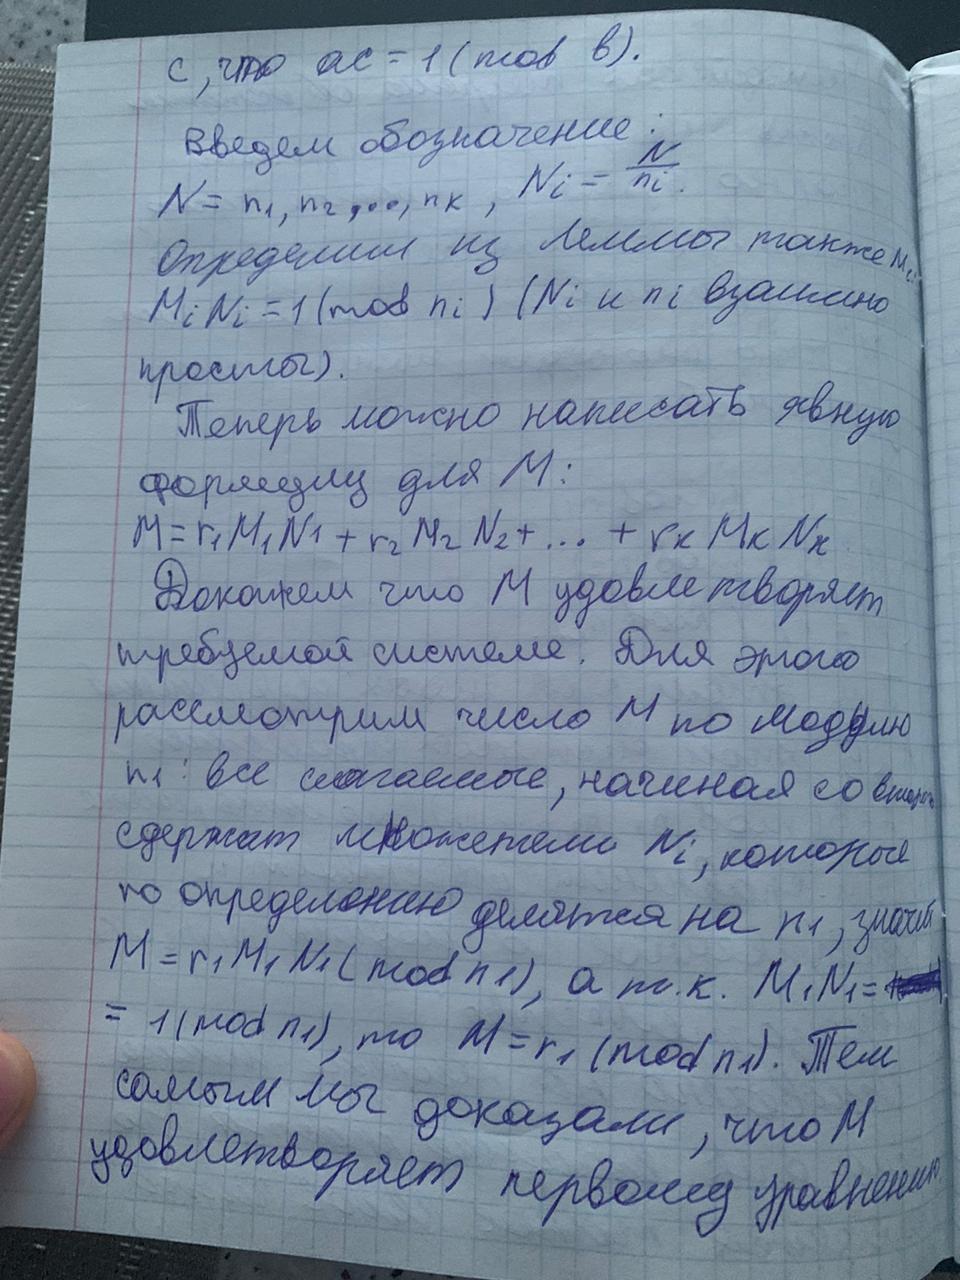 с, что ac = 1 (mod b).
Введем обозначение:
N = n₁, n₂, ..., nк, Ni = N/ni.
Определим из леммы также Mi:
MiNi = 1 (mod ni) (Ni и ni взаимно
просты).
Теперь можно написать явную
формулу для M:
M = r₁M₁N₁ + r₂M₂N₂ + ... + rкMкNк
Докажем что M удовлетворяет
требуемой системе. Для этого
рассмотрим число M по модулю
n₁: все слагаемые, начиная со второго
сдержат множетели Ni, которые
по определению делятся на n₁, значит
M = r₁M₁N₁ (mod n₁), а т.к. M₁N₁ =
= 1 (mod n₁), то M = r₁ (mod n₁). Тем
самым мы доказали, что M
удовлетворяет первому уравнению